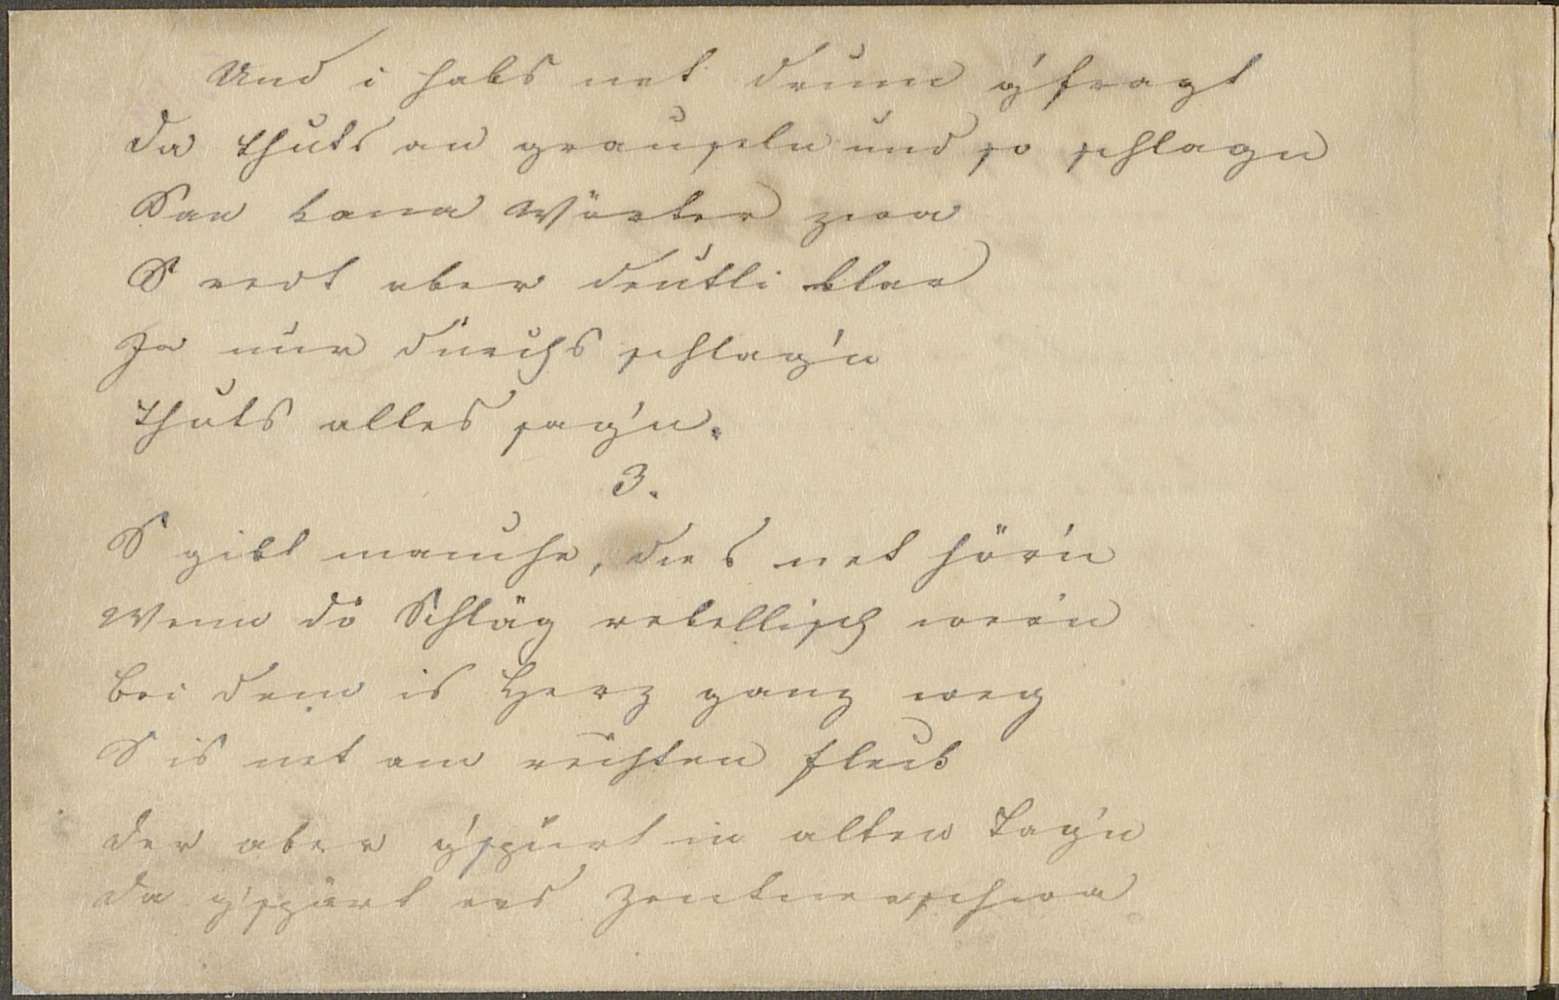 Und i habs net drum g'fragt
da thuts an grauseln und so schlagn
San kana Wörter zwa
S redt aber deutli klar
Ja nur durchs schlag'n
thuts alles sag'n.
3.
S gibt manche, die s net hör'n
Wenn dö Schläg rebellisch wer'n
bei dem is Herz ganz weg
S is net am rechten fleck
der aber g'spürt in alten Tag'n
da g'spürt ers zentnerschwa